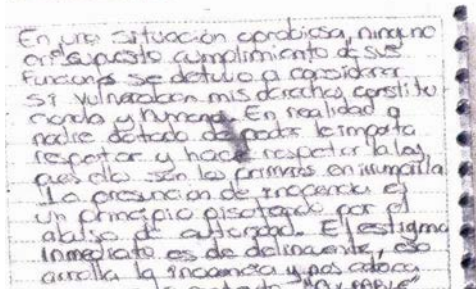 En una situación oprobiosa, ninguno
en el supuesto cumplimiento de sus
funciones se detuvo a considerar
si vulneraban mis derechos constitu
cionales y humanos. En realidad a
nadie dotado de poder le importa
respetar y hacer respetar la ley
pues ellos son los primeros en
La presunción de inocencia es
un principio pisoteado por el
abuso de autoridad. El estigma
inmediato es de delincuente, eso
arrolla la inocencia y nos coloca
"CULPABLE"